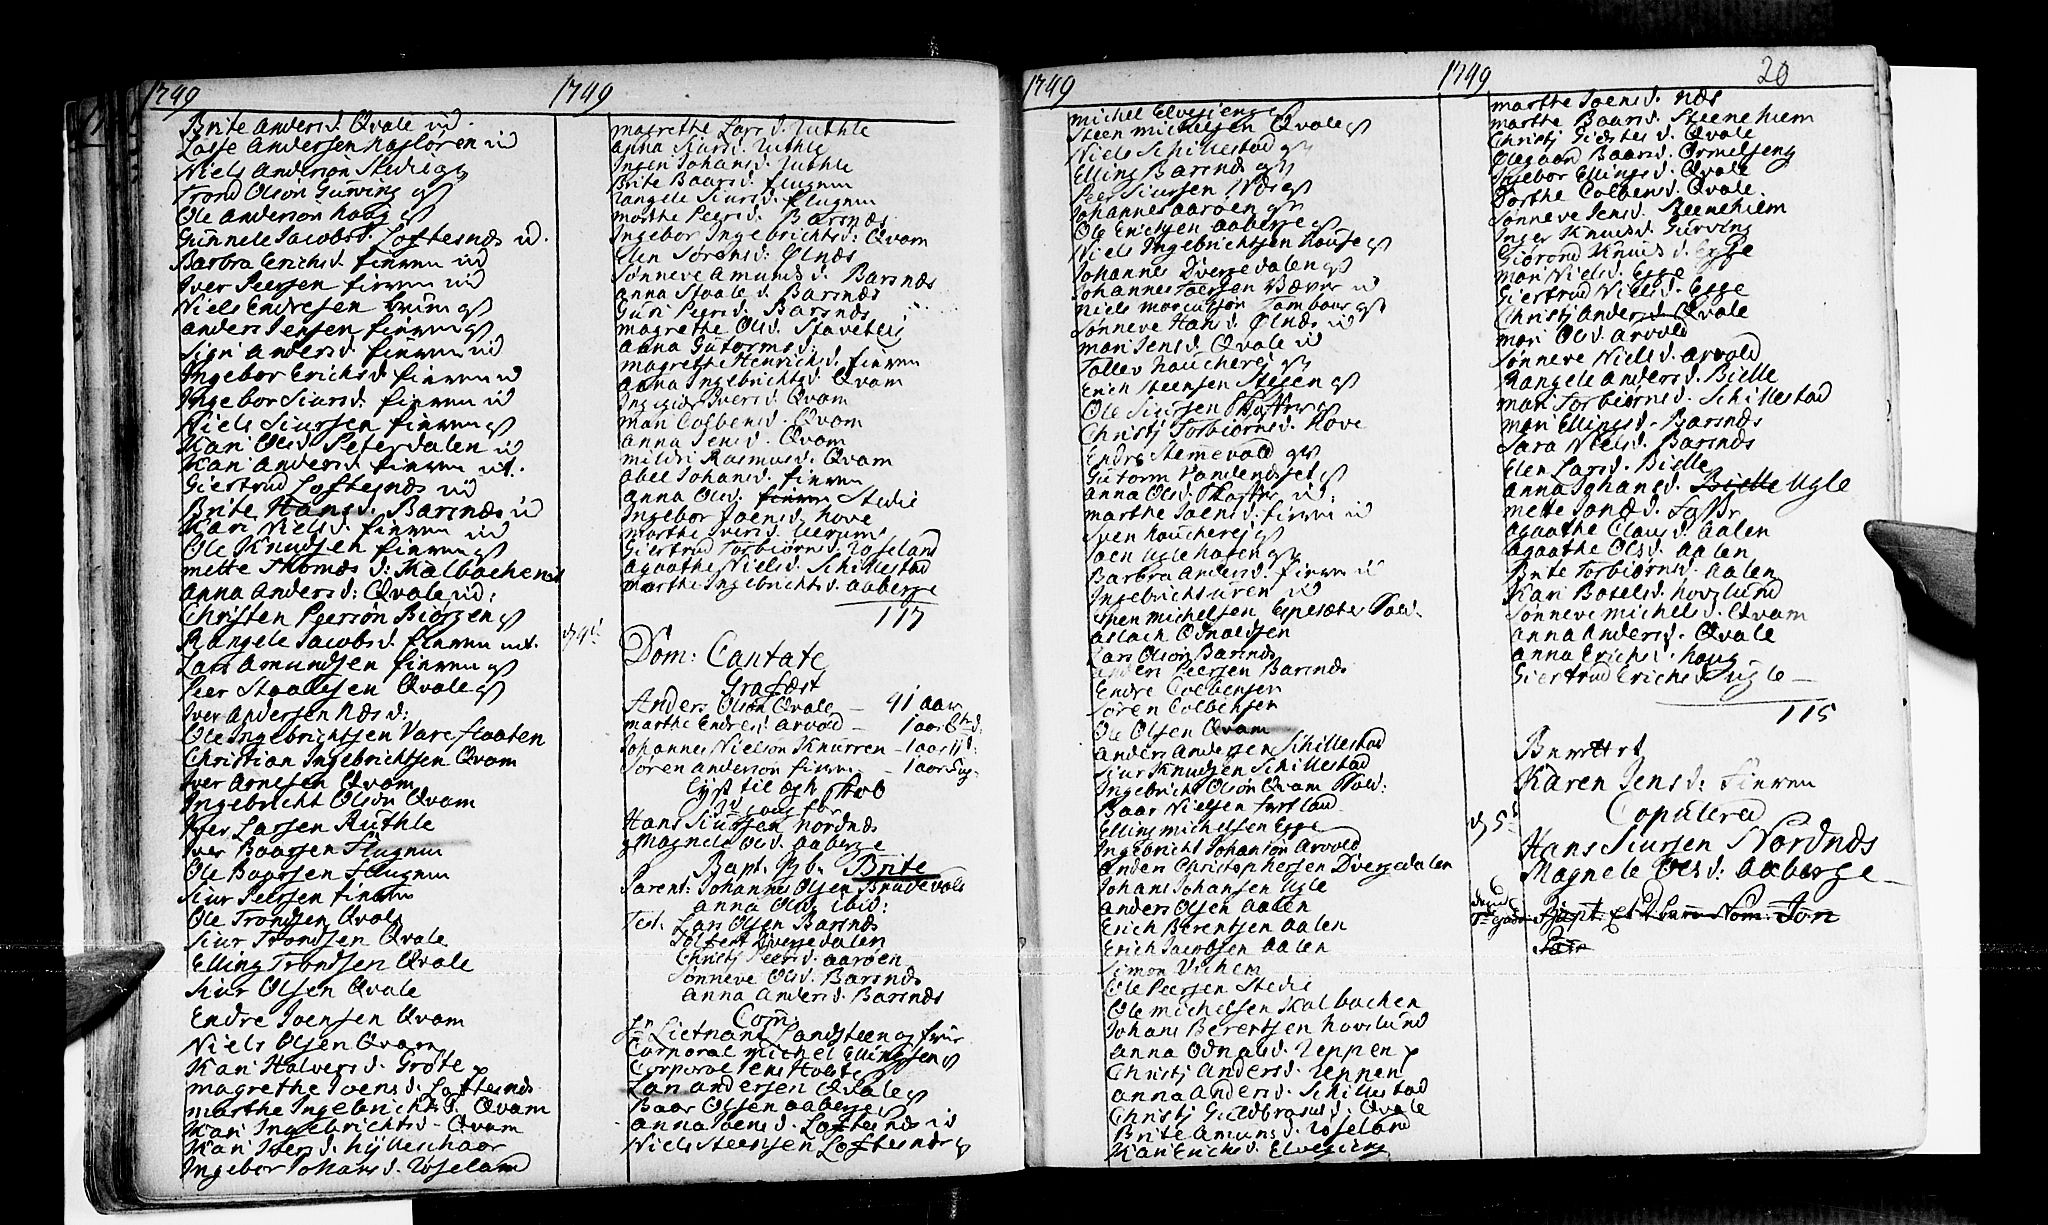 1749
Brite Anders d. Qvale id.
Lasse Andersen Kasloren id
Niels Anderson Stedie gs
Trond Olson Gurving gs
Ole Anderson Houg gs
Gunnele Jacobs d. Loftesnæs id.
Barbra Erichs d. finren id
Iver Peersen finren id
Niels Endresen Grim gs
Anders Jensen finren gs
Sigri Anders d. finren id
Ingebor Erichs d. finren id
Ingebor Siurs d: finren id
Niels Siursen finren gs
Kari Ols d. Petersdalen id
Kari Anders d. finren ut.
Giertrud Loftesnæs id
Brite Hans d. Barsnæs id
Kari Niels d. finren id
Ole Knudsen finren gs
Mette Thomæs d: Kalbachen id
Anna Anders d: Qvale id:
Christen Peerson Biørgen gs
Rangele Jacobs d. finren ut.
Lars Amundsen finren gs
Peer Staalesen Qvale gs
Iver Andersen Næs d:
Ole Ingebrichtsen Vareflaaten
Christian Ingebrichtsen Qvam
Iver Arnesen Qvam
Ingebricht Olson Qvam
Iver Larsen Ruthle
Iver Baarsen Flugum
Ole Baarsen Flugum
Siur Peersen finren
Ole Trondsen Qvale
Siur Trondsen Qvale
Elling Trondsen Qvale
Siur Olsen Qvale
Endre Joensen Qvam
Niels Olsen Qvam
Kari Halvers d. Grøte
Magrethe Joens d. Loftesnæs
Marthe Ingebrichts d. Qvam
Kari Ingebrichts d. Qvam
Kari Ivers d. hylleshaar
Ingebor Johans d. Røseland
1749
Magrethe Lars d. Ruthle
Anna Siurs d. Ruthle
Ingen Johans d. Ruthle
Brite Baars d. Flugum
Rangele Siurs d. Flugum
Marthe Peers d. Barsnæs
Ingebor Ingebrichts d: Qvam
Elen Sørens d: Ølnæs
Sønneve Amunds d. Barsnæs
Anna Staale d. Barsnæs
Guri Peers d. Barsnæs
Magrethe Ols d. Stavelie
Anna Gutorms d:
Magrethe Henrichs d. finren
Anna Ingebrichts d. Qvam
Ingier Ivers d. Qvam
Mari Colbens d. Qvam
Anna Jens d. Qvam
Mildri Rasmus d: Qvam
Abel Johans d. finren
Anna Ols d. finren Stedie
Ingebor Joens d. Hove
Marthe Ivers d. Uerum
Giertrud Torbiørns d. Røseland
Agaathe Niels d. Schillestad
Marthe Ingebrichts d. aaberge
117
d 4de
Dom: Cantate
Grafæst
Anders Olson Qvale — 91 aar
Marthe Endre d. Arvold — 1 aar 6 m d:
Johannes Nielson Knurren — 1 aar 11 d:
Søren Anderson finren — 1 aar 5 ug:
Lyst til ægt skab
3d gang for
Hans Siursen Nordnæs
Magnele Ols d. aaberge
Bapt. Pb. Brite
Parent: Johannes Olsen Brudevold
Anna Ols d. ibid:
Test: Lars Olsen Barsnæs
Solfest Dvergedalen
Christj Peers d. aarøen
Sønneve Ols d. Barsnæs
Anna Anders d. Barsnæs
Com:
Hr Lietnant Landsteen og frue
Corporal Michel Ellingsen gs
Corporal Jens Holste
Lars Andersen Qvale gs
Baar Olsen aaberge gs
Anna Joens d. Loftesnæs id
Niels Steensen Loftesnæs gs
1749
Michel Elvegienge
Steen Michelsen Qvale gs
Niels Schillestad gs
Elling Barsnæs gs
Peer Siursen Næs gs
Johannes aarøen gs
Ole Erichsen aaberge gs
Niels Ingebrichtsen House gs
Johannes Dvergedalen gs
Johannes Toersen Bæver id
Niels Marcusson Tambour gs
Sønneve Hans d. Ølnæs id
Mari Jens d. Qvale id
Tollev Haucherej gs
Erich Steensen Stegen gs
Ole Siursen Skotter gs
Christj Torbiørns d. Hove
Endre Stemevold gs
Gutorm Vandendset gs
Anna Ols d. Skotter id:
Marthe Joens d. finren id
Sven Haucherej gs
Joen Uglehafen gs
Barbra Anders d. finren id
Ingebricht uren id
Espen Michelsen Espesæter Sold.
Aslach Odnaldsen
Lars Olson Barsnæs
Anders Peersen Barsnæs
Endre Colbensen
Søren Colbensen
Ole Olsen Qvam
Anders Andersen Schillestad
Siur Knudsen Schillestad
Ingebricht Olson Qvam Sold:
Baar Nielsen
Elling Michelsen Egge
Ingebricht Johanson Arvold
Anders Christophersen Dvergedalen
Johans Johansen Ugle
Anders Olsen Aalen
Erich Berentsen Aalen
Erich Jacobsen Aalen
Simon Vichem
Ole Peersen Stedie
Ole Michelsen Kalbachen
Johans Berentsen Hovslund
Anna Odnals d. Reppen
Christj Anders d. Reppen
Anna Anders d. Schillestad
Christj Guldbrans d: Qvale
Brite Amuns d. Røseland
Kari Erichs d. Elvegieng
1749
20
Marthe Joens d. Næs
Marthe Baars d. Steenehiem
Christj Giertes d. Qvale
Olegaard Baars d. Ormelseng
Ingebor Ellings d. Qvale
Dorthe Colbens d. Qvale.
Sønneve Jens d. Steenehiem
Inger Knuds d. Gurving
Gudrond Knuds d. Egge
Mari Niels d. Egge
Giertrud Niels d. Egge
Christj Anders d. Qvale
Mari Ols d. Arvold
Sønneve Niels d. Arvold
Rangele Anders d. Bielle
Mari Torbiørns d. Schillestad
Mari Ellings d. Barsnæs
Sara Niels d. Barsnæs
Elen Lars d. Bielle
Anna Johans d. Bielle Ugle
Mette Jonæ d.
Agaathe Claus d. Aalen
Agaathe Ols d. Aalen
Brite Torbiørns d. Aalen
Kari Botels d. Hovslund
Sønneve Michels d. Qvam
Anna Anders d. Qvale
Anna Erichs d. Houg
Giertrud Erichs d. Ugle —
115
Karen Jens d: Finren
Copulered
d 5te
Hans Siursen Nordnæs
Magnele Oles d: aaberge
Bapt. et Dham Nom: Jon